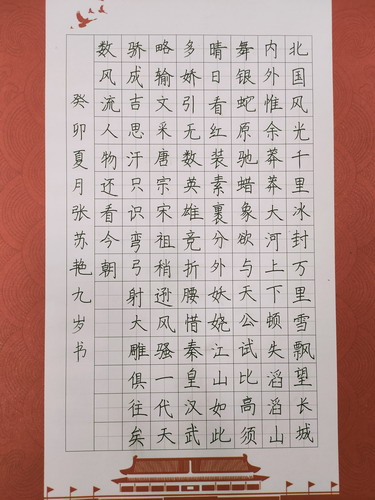 北国风光千里冰封万里雪飘望长城
内外惟余莽莽大河上下顿失滔滔山
舞银蛇原驰蜡象欲与天公试比高须
晴日看红装素裹分外妖娆江山如此
多娇引无数英雄竞折腰惜秦皇汉武
略输文采唐宗宋祖稍逊风骚一代天
骄成吉思汗只识弯弓射大雕俱往矣
数风流人物还看今朝
癸卯夏月张苏艳九岁书